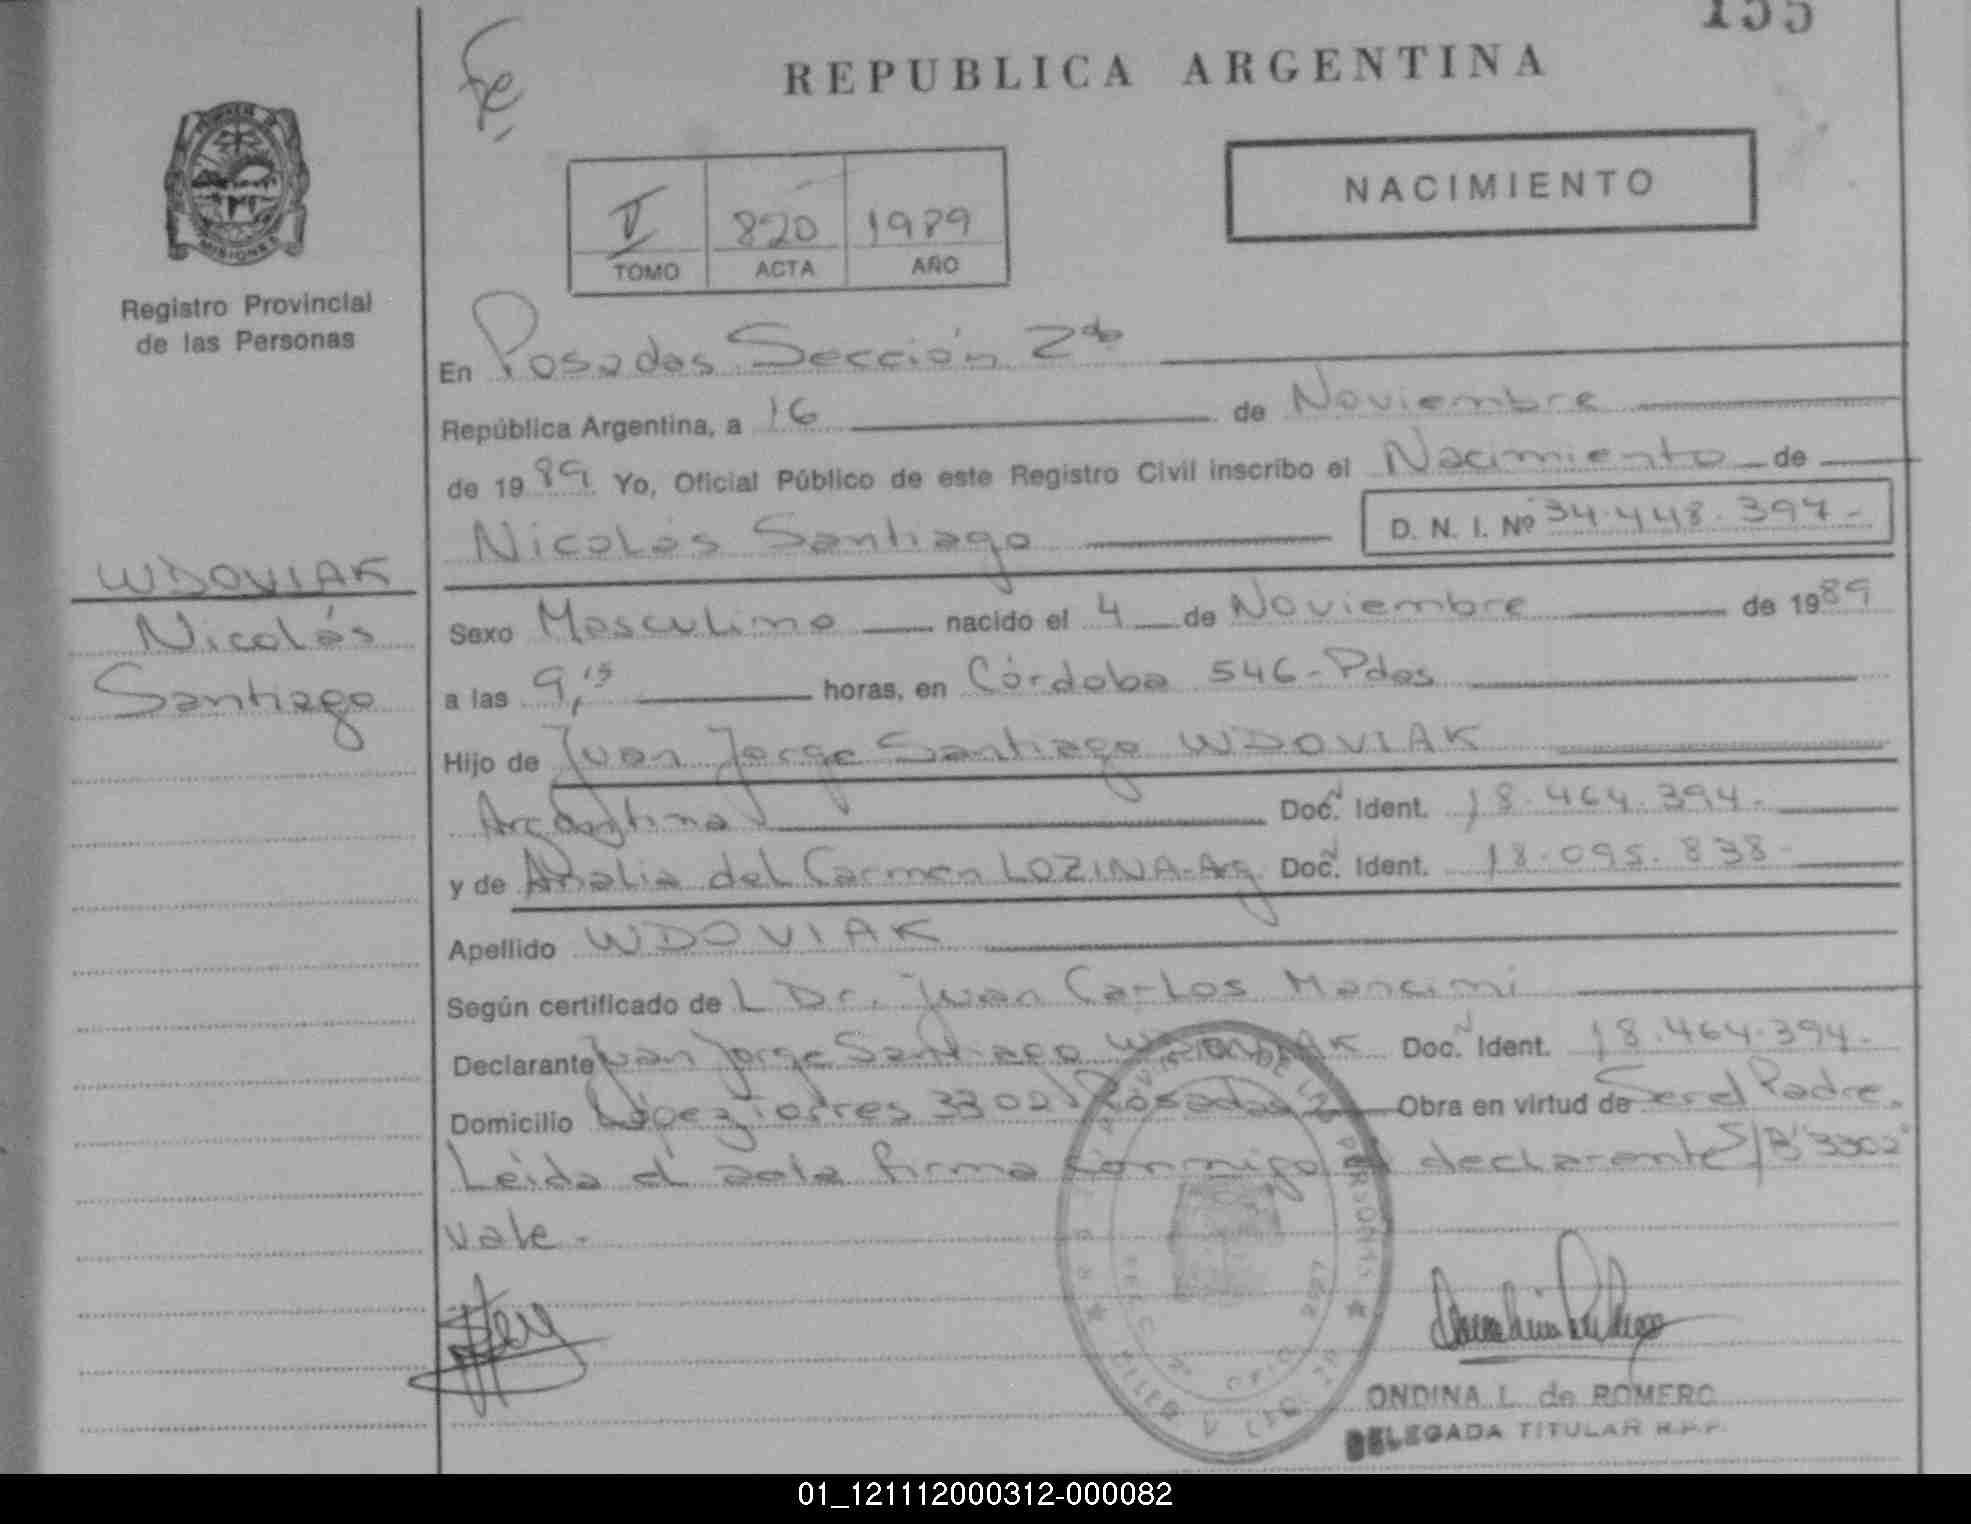 155
Fe
REPUBLICA ARGENTINA
NACIMIENTO
V 820 1989
TOMO ACTA AÑO
MISIONES
Registro Provincial
de las Personas
WDOVIAK
Nicolás
Santiago
En Posadas Sección 2da
República Argentina, a 16 de Noviembre
de 1989 Yo, Oficial Público de este Registro Civil inscribo el Nacimiento de
Nicolás Santiago D. N. I. Nº 34.448.397-
Sexo Masculino nacido el 4 de Noviembre de 1989
a las 9,15 horas, en Córdoba 546-Pdas
Hijo de Juan Jorge Santiago WDOVIAK
Argentina Doc. Ident. 18.464.394-
y de Analia del Carmen LOZINA-Arg. Doc. Ident. 18.095.838-
Apellido WDOVIAK
Según certificado de L Dr. Juan Carlos Mancini
Declarante Juan Jorge Santiago WDOVIAK Doc. Ident. 18.464.394.
Domicilio López Torres 3302 Posadas Obra en virtud de Ser el Padre.
Leida el acta firma conmigo el declarante S/B"3302"
vale-
ONDINA L. de ROMERO
DELEGADA TITULAR R.P.P.
01_121112000312-000082